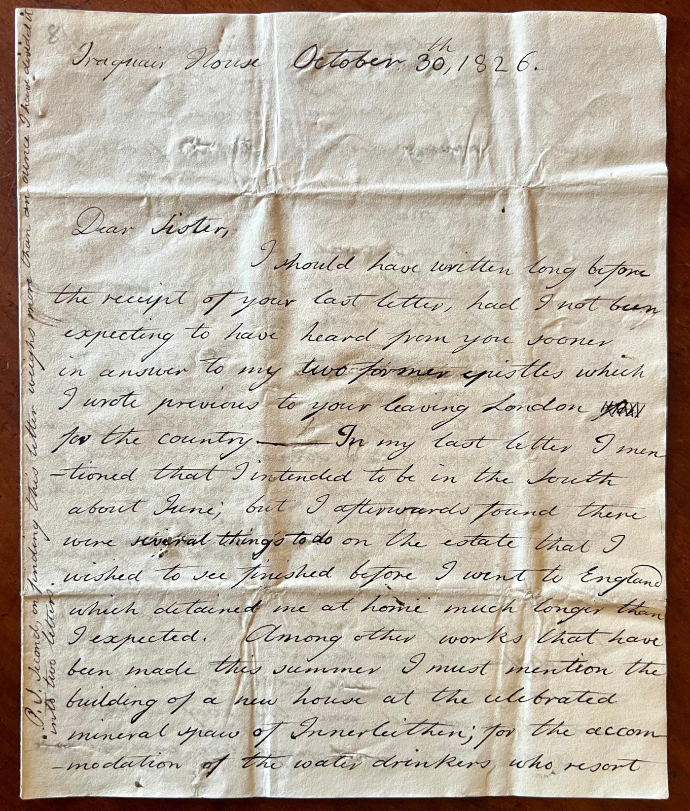 8
Traquair House October 30th, 1826.
Dear Sister,
I should have written long before
the receipt of your last letter, had I not been
expecting to have heard from you sooner
in answer to my two former epistles which
I wrote previous to your leaving London
for the country —— In my last letter I men
-tioned that I intended to be in the South
about June, but I afterwards found there
were several things to do on the estate that I
wished to see finished before I went to England
which detained me at home much longer than
I expected. Among other works that have
been made this summer I must mention the
building of a new house at the celebrated
mineral spaw of Innerleithen; for the accom
-modation of the water drinkers who resort
P.S. Second, on finding this letter weighs more than an ounce I have divided it
into two letters.